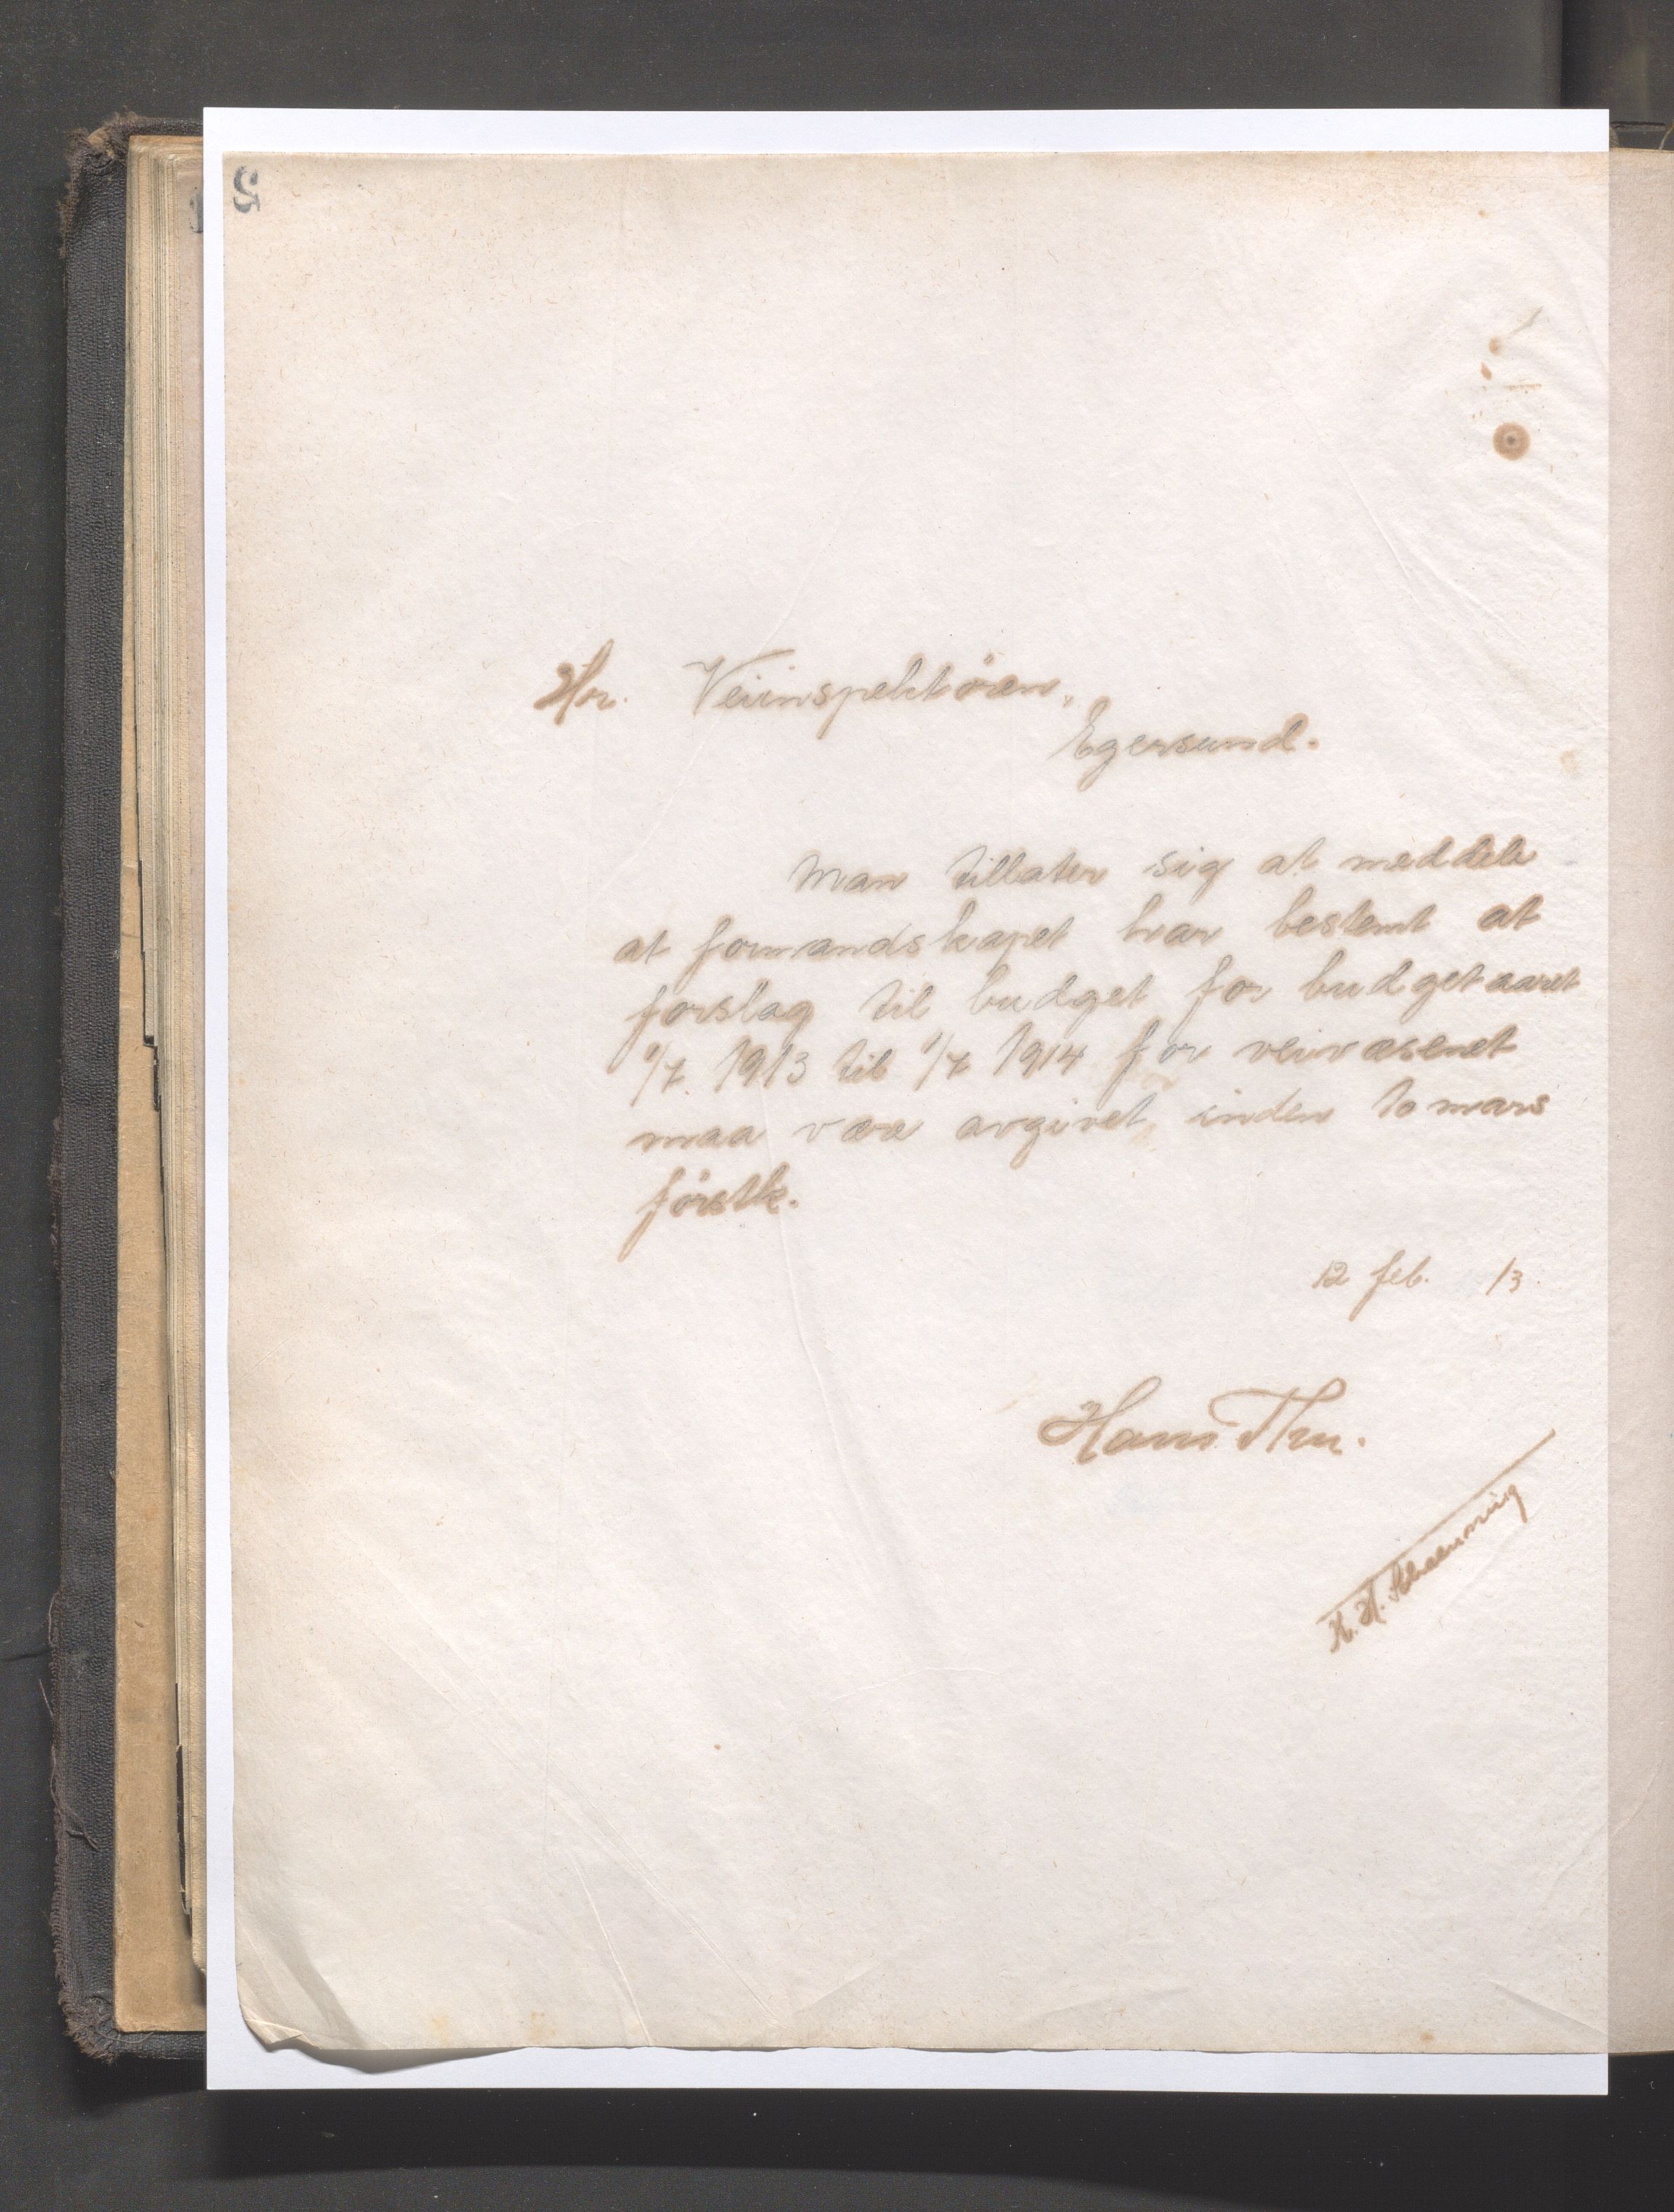 5
Hr. Veiinspektøren,
Egersund.
Man tillater sig at meddele
at formandskapet har bestemt at
forslag til budget for budgetaaret
1/7 1913 til 1/7 1914 for veivæsenet
maa være avgivet inden 10 mars
førstk.
12 feb. 13.
Hans
K. H.